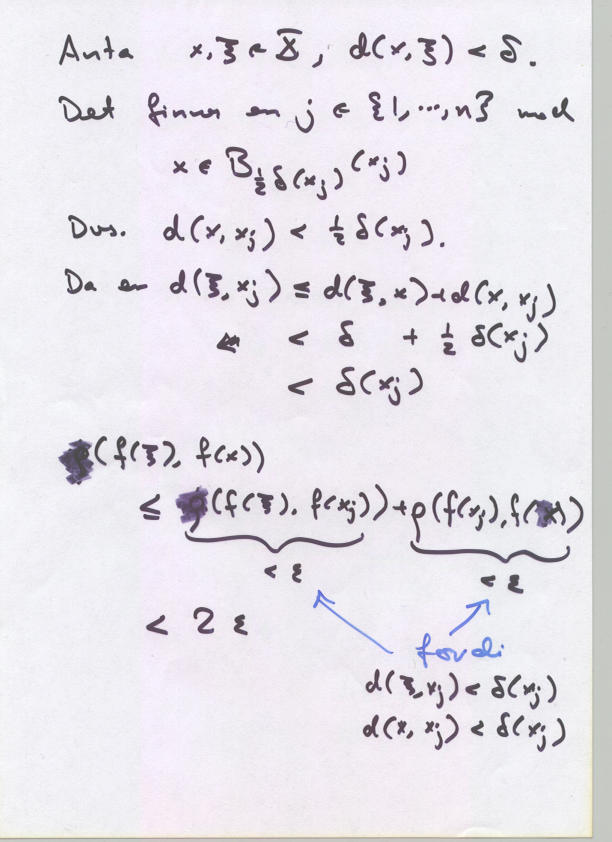 Anta x, ξ ∈ X, d(x, ξ) < δ.
Det finnes en j ∈ {1, ..., n} med
x ∈ B_{½δ(x_j)}(x_j)
Dvs. d(x, x_j) < ½ δ(x_j).
Da er d(ξ, x_j) ≤ d(ξ, x) + d(x, x_j)
< δ + ½ δ(x_j)
< δ(x_j)
ρ(f(ξ), f(x))
≤ ρ(f(ξ), f(x_j)) + ρ(f(x_j), f(x))
< ε < ε
< 2 ε
fordi
d(ξ, x_j) < δ(x_j)
d(x, x_j) < δ(x_j)